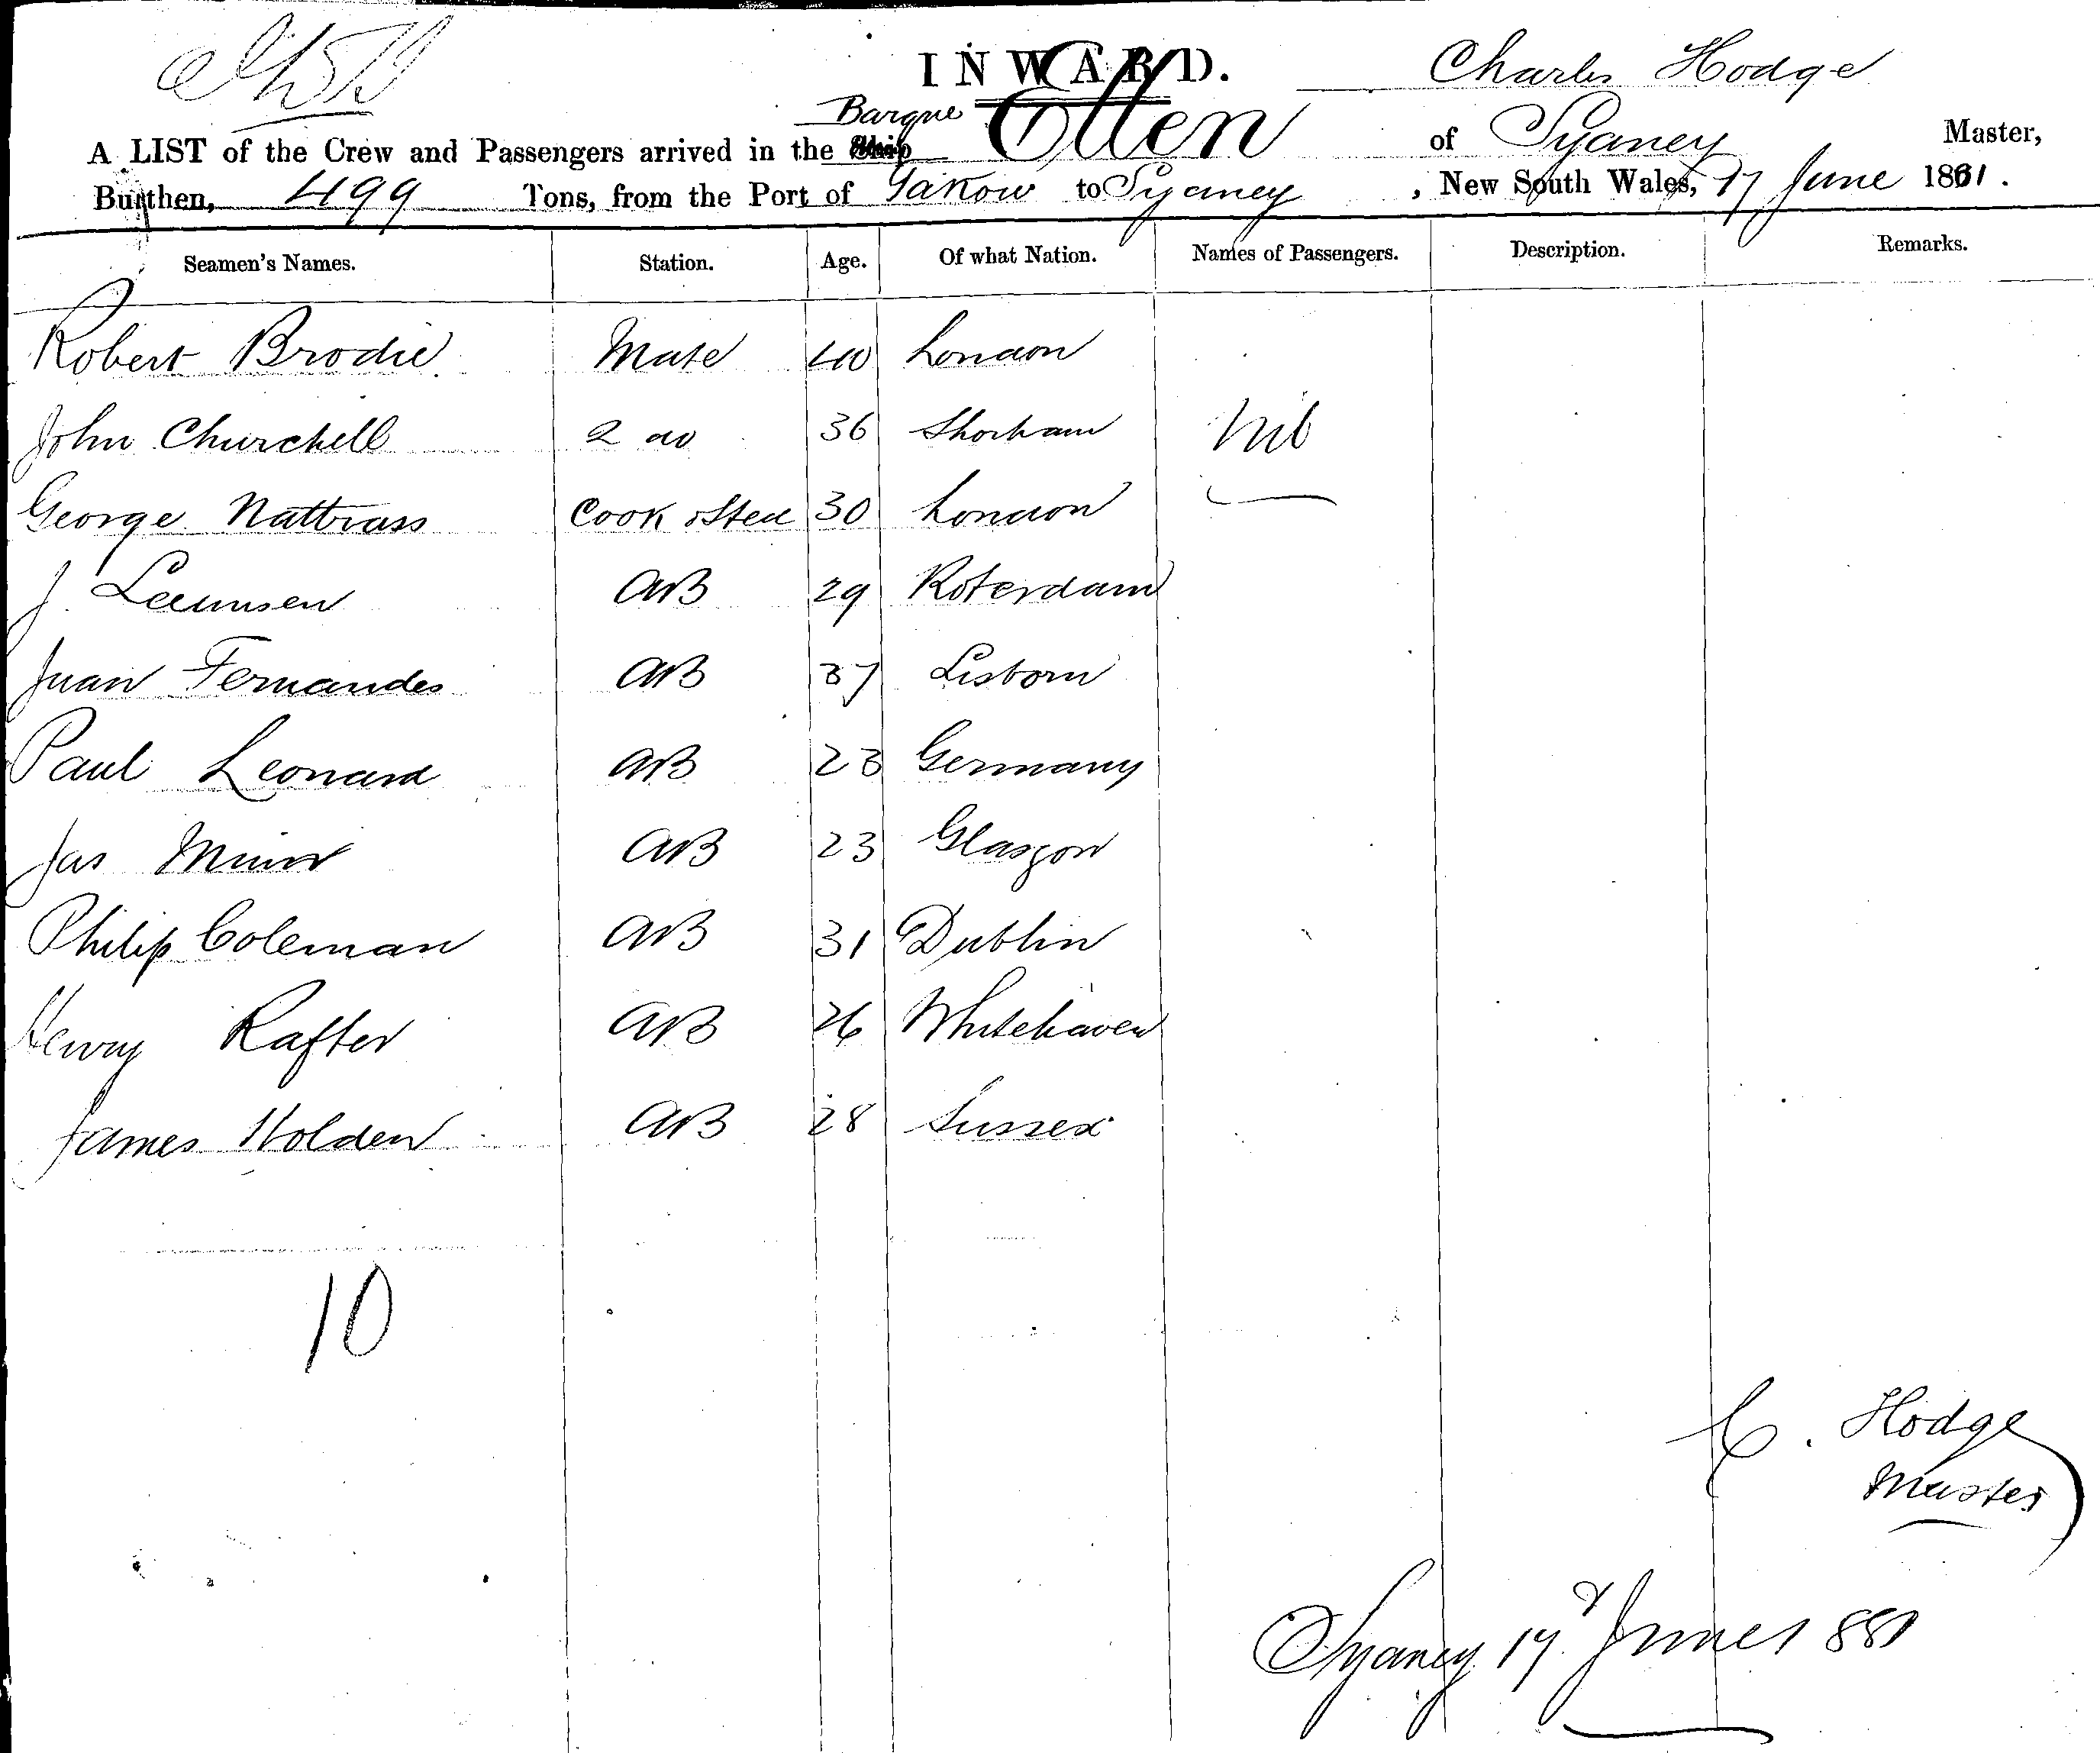 INWARD.
Charles Hodge
Barque Ellen of Sydney Master,
A LIST of the Crew and Passengers arrived in the Ship
Burthen, 499 Tons, from the Port of Takow to Sydney, New South Wales, 17 June 1881.
Seamen's Names. Station. Age. Of what Nation. Names of Passengers. Description. Remarks.
Robert Brodie Mate 40 London
John Churchell 2 do 36 Shorham Nil
George Nattrass Cook & Stew 30 London
J. AB 29 Roterdam
Juan Fernandes AB 37 Lisborn
Paul Leonard AB 23 Germany
Jas AB 23 Glasgow
Philip Coleman AB 31 Dublin
Henry Rafter AB 26 Whitehaven
James Holden AB 28 Sussex
10
C. Hodge
Master
Sydney 17 June 1881